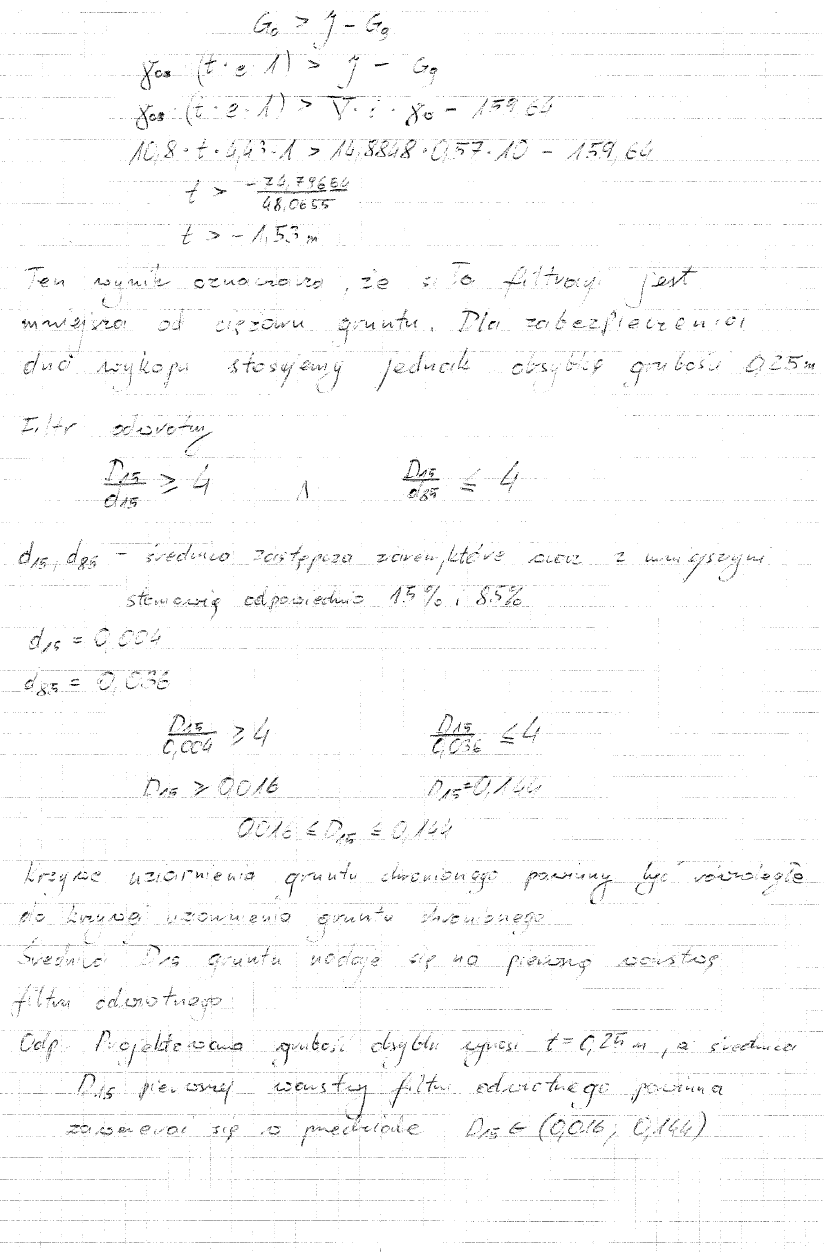 G₀ > J - Gg
γos (t · e · 1) > J - Gg
γos (t · e · 1) > V · i · γo - 159,64
10,8 · t · 4,43 · 1 > 14,8848 · 0,57 · 10 - 159,64
t > -74,79664 / 48,0655
t > -1,53 m
Ten wynik oznacza, że siła filtracji jest
mniejsza od ciężaru gruntu. Dla zabezpieczenia
dna wykopu stosujemy jednak obsybkę grubości 0,25 m
Filtr odwrotny
D₁₅/d₁₅ ≥ 4 ∧ D₁₅/d₈₅ ≤ 4
d₁₅, d₈₅ - średnica zastępcza ziaren, które wraz z mniejszymi
stanowią odpowiednio 15% i 85%
d₁₅ = 0,004
d₈₅ = 0,036
D₁₅/0,004 ≥ 4 D₁₅/0,036 ≤ 4
D₁₅ ≥ 0,016 D₁₅ = 0,144
0,016 ≤ D₁₅ ≤ 0,144
Krzywe uziarnienia gruntu chronionego powinny być równoległe
do krzywej uziarnienia gruntu chronionego
Średnica D₁₅ gruntu nadaje się na pierwszą warstwę
filtru odwrotnego
Odp. Projektowana grubość obsybki wynosi t = 0,25 m, a średnica
D₁₅ pierwszej warstwy filtru odwrotnego powinna
zawierać się w przedziale D₁₅ ∈ (0,016; 0,144)